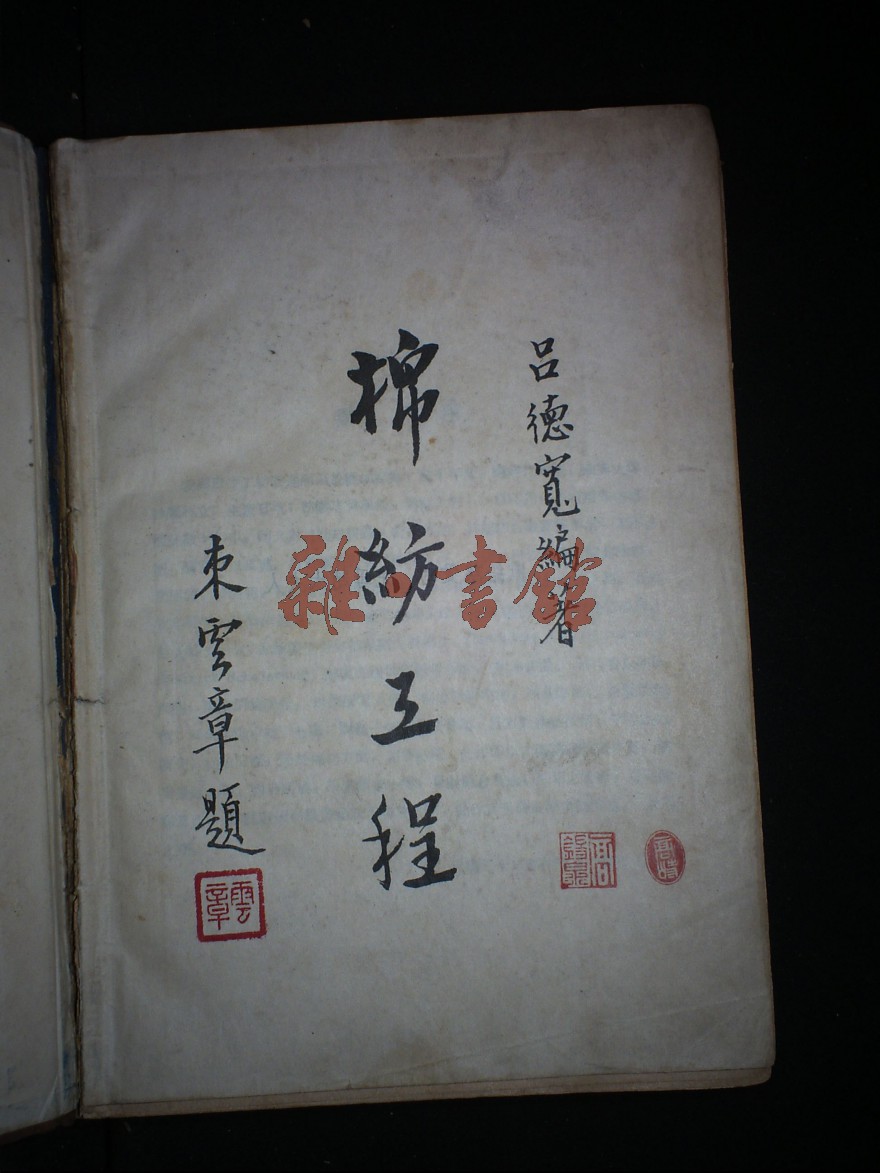 吕德寬編著
棉紡工程
束雲章題
雲章
雜·書館